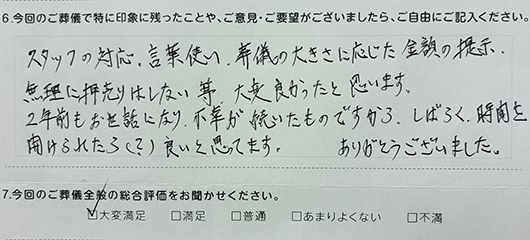 6.今回のご葬儀で特に印象に残ったことや、ご意見・ご要望がございましたら、ご自由にご記入ください。
スタッフの対応、言葉使い、葬儀の大きさに応じた金額の提示、
無理に押売りはしない等 大変良かったと思います。
2年前もお世話になり、不幸が続いたものですから、しばらく、時間を
開けられたら(?)良いと思ってます。 ありがとうございました。
7.今回のご葬儀全般の総合評価をお聞かせください。
☑大変満足 □満足 □普通 □あまりよくない □不満